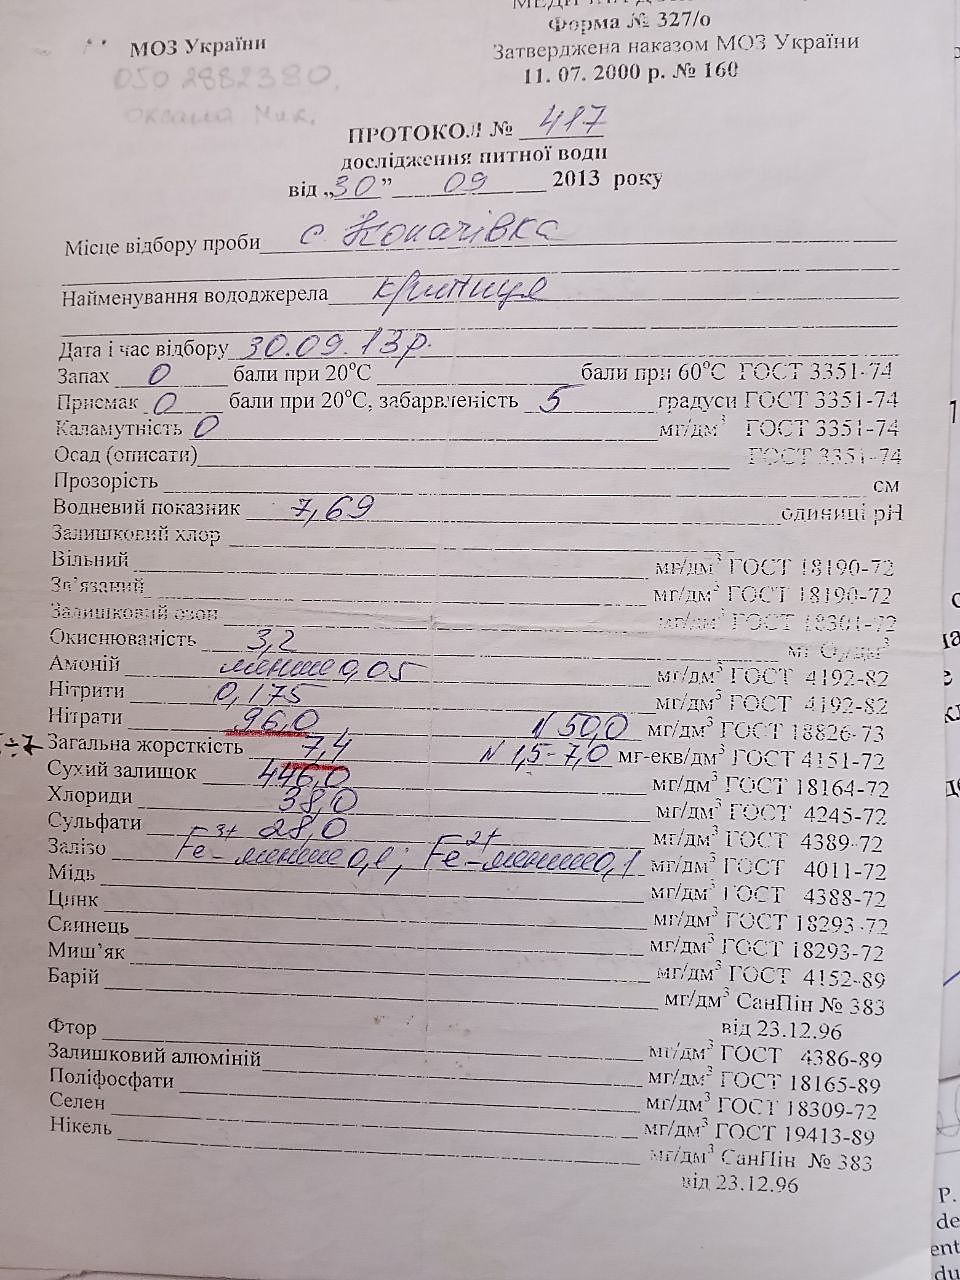 МЕДИ
Форма № 327/о
МОЗ України
Затверджена наказом МОЗ України
11. 07. 2000 р. № 160
050 2882380.
Оксана Мик.
ПРОТОКОЛ № 417
дослідження питної води
від „30” 09 2013 року
Місце відбору проби с. Копачівка
Найменування вододжерела криниця
Дата і час відбору 30.09.13р.
Запах 0 бали при 20°С бали при 60°С ГОСТ 3351-74
Присмак 0 бали при 20°С, забарвленість 5 градуси ГОСТ 3351-74
Каламутність 0 мг/дм³ ГОСТ 3351-74
Осад (описати) ГОСТ 3351-74
Прозорість см
Водневий показник 7,69 одиниці рН
Залишковий хлор
Вільний мг/дм³ ГОСТ 18190-72
Зв'язаний мг/дм³ ГОСТ 18190-72
Залишковий озон мг/дм³ ГОСТ 18301-72
Окиснюваність 3,2 мг О₂/дм³
Амоній менше 0,05 мг/дм³ ГОСТ 4192-82
Нітрити 0,175 мг/дм³ ГОСТ 4192-82
Нітрати 96,0 N 50,0 мг/дм³ ГОСТ 18826-73
÷7 Загальна жорсткість 7,4 N 1,5-7,0 мг-екв/дм³ ГОСТ 4151-72
Сухий залишок 446,0 мг/дм³ ГОСТ 18164-72
Хлориди 38,0 мг/дм³ ГОСТ 4245-72
Сульфати 28,0 мг/дм³ ГОСТ 4389-72
Залізо Fe³⁺ - менше 0,1; Fe²⁺ - менше 0,1 мг/дм³ ГОСТ 4011-72
Мідь мг/дм³ ГОСТ 4388-72
Цинк мг/дм³ ГОСТ 18293-72
Свинець мг/дм³ ГОСТ 18293-72
Миш'як мг/дм³ ГОСТ 4152-89
Барій мг/дм³ СанПін № 383
від 23.12.96
Фтор мг/дм³ ГОСТ 4386-89
Залишковий алюміній мг/дм³ ГОСТ 18165-89
Поліфосфати мг/дм³ ГОСТ 18309-72
Селен мг/дм³ ГОСТ 19413-89
Нікель мг/дм³ СанПін № 383
від 23.12.96
P.
de
ent
du